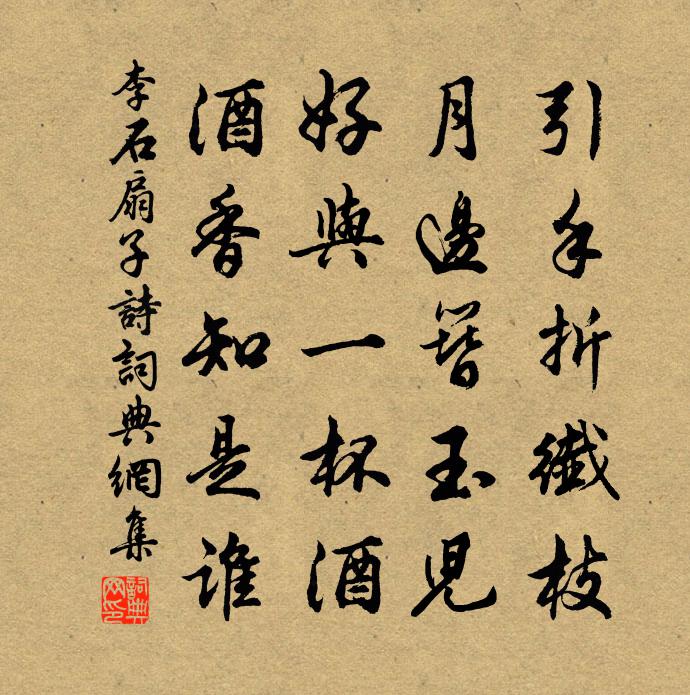 引手折纖枝
月邊簪玉児
好與一杯酒
酒香知是誰
李石扇子詩詞典網集
詞典網印